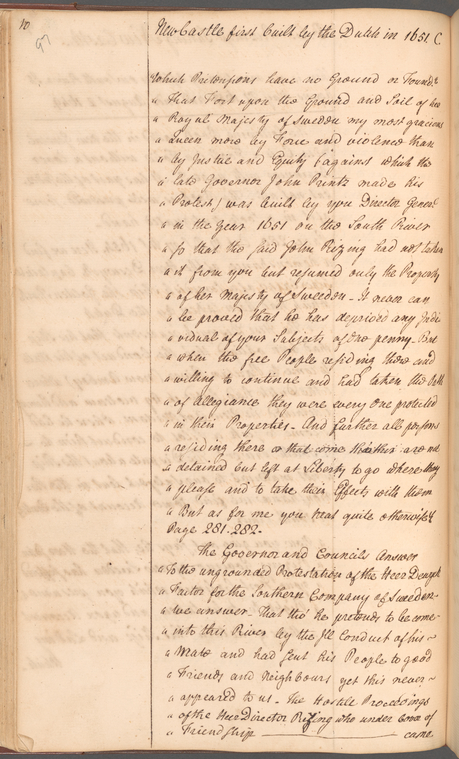 10
97
New Castle first built by the Dutch in 1651 C.
Which Pretensions have no Ground or Foundt
" That Fort upon the Ground and Soil of her
" Royal Majesty of Sweeden my most gracious
" Queen more by Force and violence than
" by Justice and Equity (against which the
" late Governor John Printz made his
" Protest) was built by you Director Genel
" in the Year 1651 on the South River
" So that the said John Rizing had not taken
" it from you but resumed only the Property
" of her Majesty of Sweeden - It never can
" be proved that he has deprived any Indi
" vidual of your Subjects of One penny - But
" when the free People residing there and
" willing to continue and had taken the Oath
" of Allegiance they were every One protected
" in their Properties - And further all persons
" residing there or that come thither are not
" detained but left at Liberty to go where they
" please and to take their Effects with them
" But as for me you treat quite otherwise &
Page 281-282-
The Governor and Councils Answer
" To the ungrounded Protestation of the Heer
" Factor for the Southern Company of Sweeden-
" we answer- That tho' he pretends to be come-
" into this River by the Ill Conduct of his ~
" Mate and had sent his People to good
" Friends and Neighbours yet this never ~
" appeared to us - The Hostile Proceedings
" of the Heer Director Rizing who under Cover of
" Friendship came